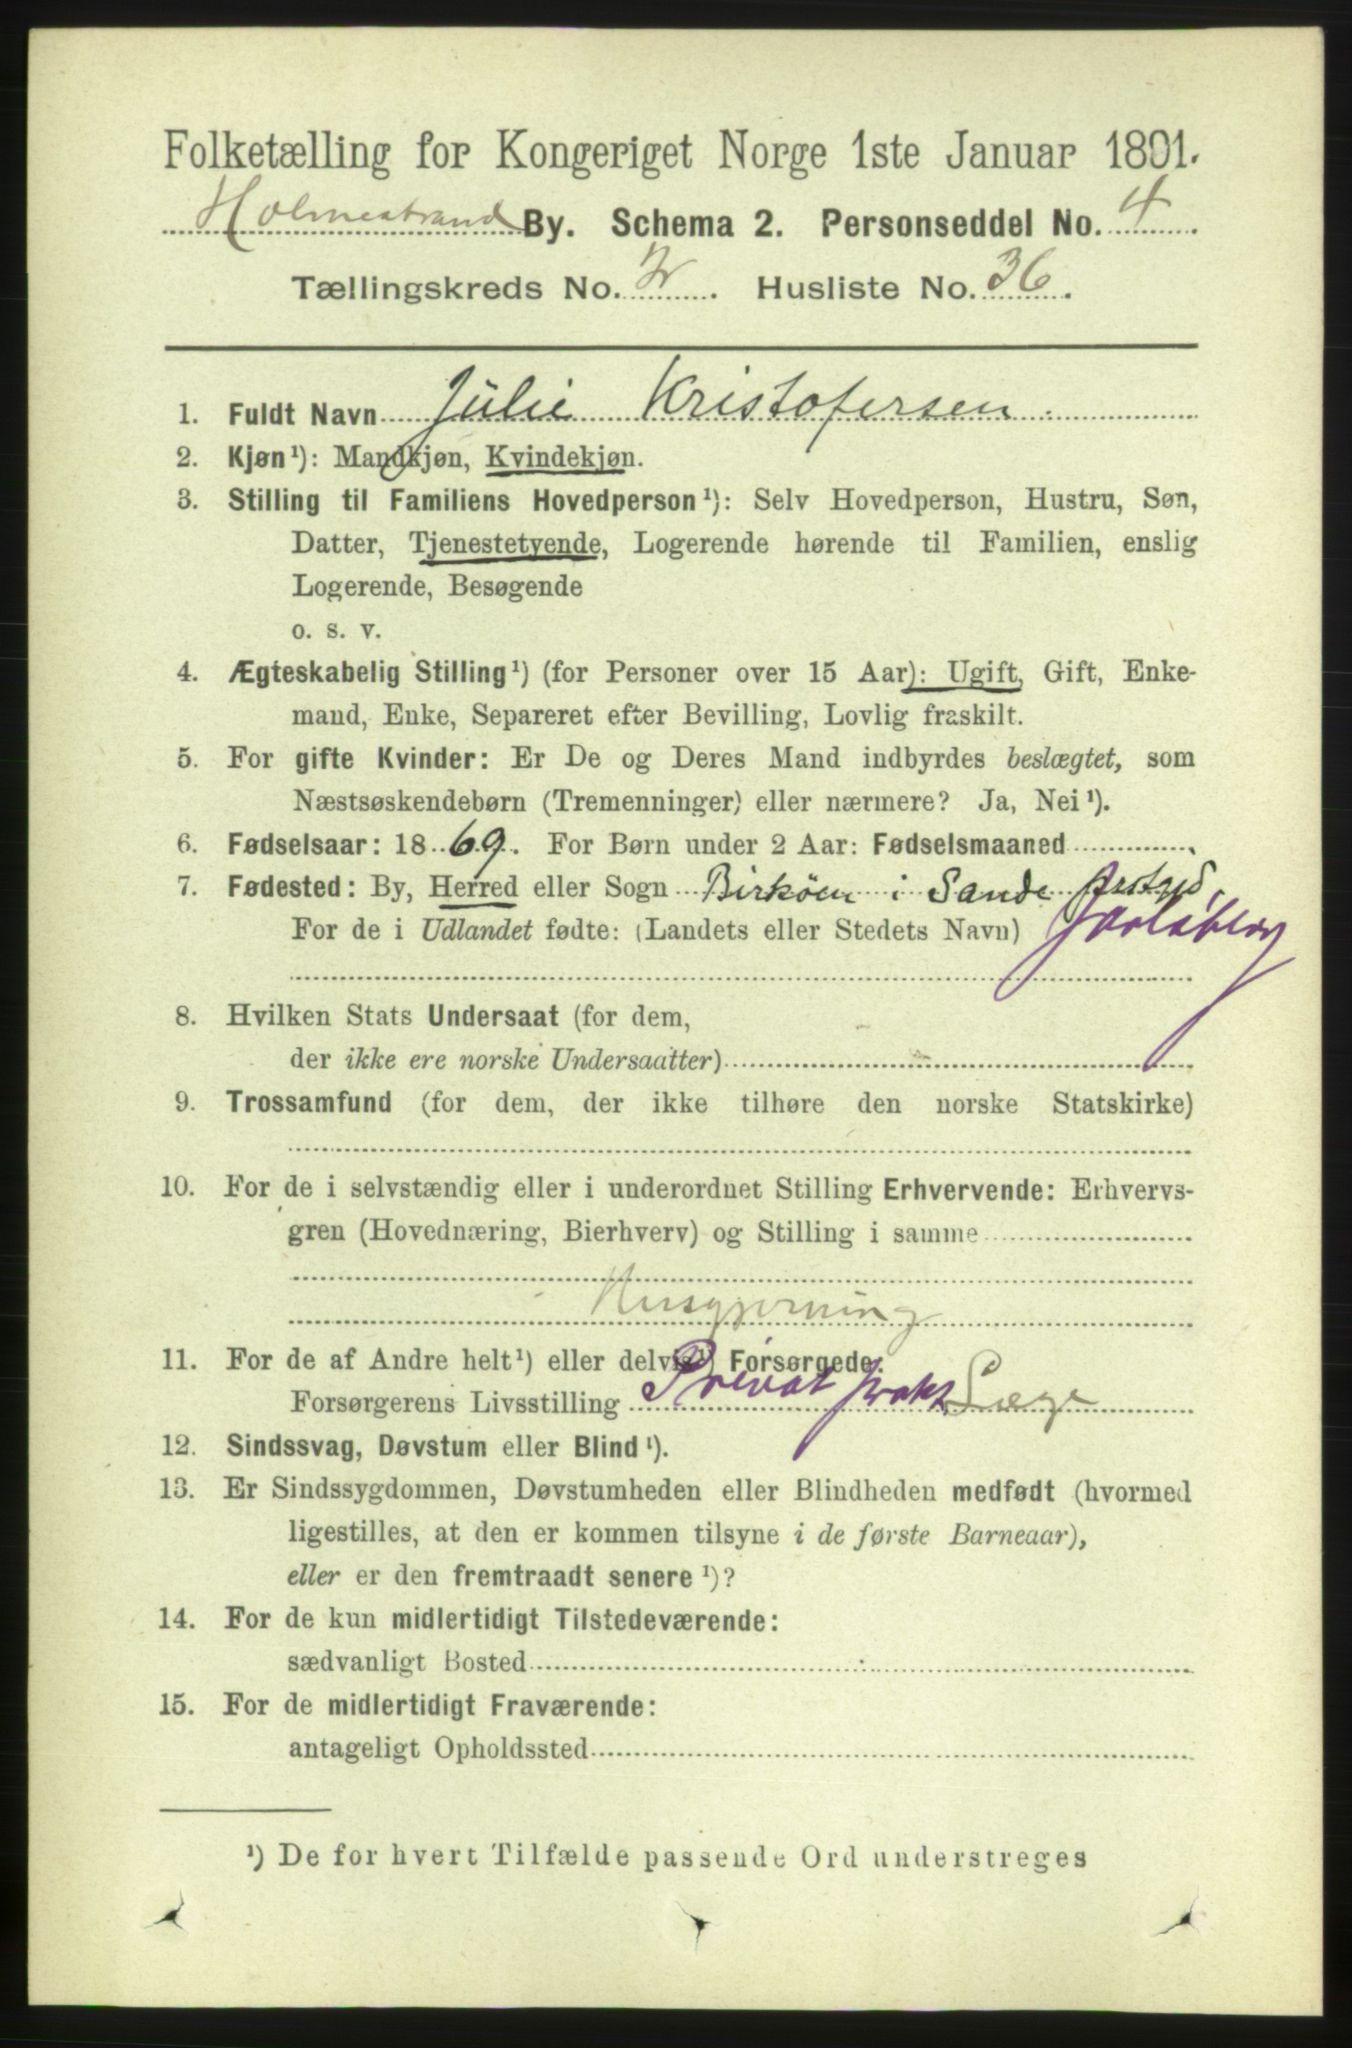 Folketælling for Kongeriget Norge 1ste Januar 1891.
Holmestrand By. Schema 2. Personseddel No. 4
Tællingskreds No. 2. Husliste No. 36.
1. Fuldt Navn Julie Kristofersen
2. Kjøn¹): Mandkjøn, Kvindekjøn.
3. Stilling til Familiens Hovedperson¹): Selv Hovedperson, Hustru, Søn,
Datter, Tjenestetyende, Logerende hørende til Familien, enslig
Logerende, Besøgende
o. s. v.
4. Ægteskabelig Stilling¹) (for Personer over 15 Aar): Ugift, Gift, Enke-
mand, Enke, Separeret efter Bevilling, Lovlig fraskilt.
5. For gifte Kvinder: Er De og Deres Mand indbyrdes beslægtet, som
Næstsøskendebørn (Tremenninger) eller nærmere? Ja, Nei¹).
6. Fødselsaar: 1869. For Børn under 2 Aar: Fødselsmaaned
7. Fødested: By, Herred eller Sogn Birköen i Sande
For de i Udlandet fødte: (Landets eller Stedets Navn) Jarlsberg
8. Hvilken Stats Undersaat (for dem,
der ikke ere norske Undersaatter)
9. Trossamfund (for dem, der ikke tilhøre den norske Statskirke)
10. For de i selvstændig eller i underordnet Stilling Erhvervende: Erhvervs-
gren (Hovednæring, Bierhverv) og Stilling i samme
Husgjerning
11. For de af Andre helt¹) eller delvis¹) Forsørgede:
Forsørgerens Livsstilling Privat prakt. Læge
12. Sindssvag, Døvstum eller Blind¹).
13. Er Sindssygdommen, Døvstumheden eller Blindheden medfødt (hvormed
ligestilles, at den er kommen tilsyne i de første Barneaar),
eller er den fremtraadt senere¹)?
14. For de kun midlertidigt Tilstedeværende:
sædvanligt Bosted
15. For de midlertidigt Fraværende:
antageligt Opholdssted
¹) De for hvert Tilfælde passende Ord understreges